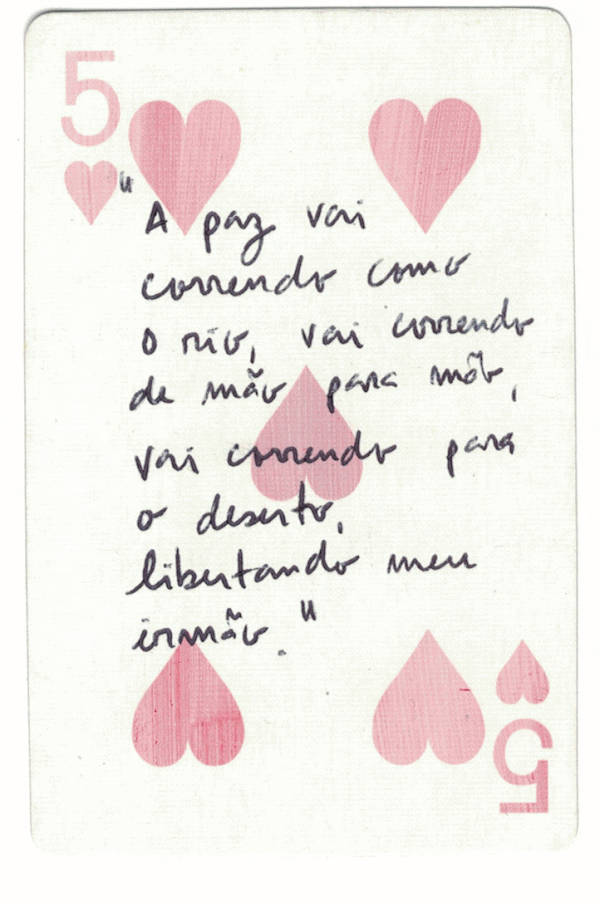 5
"A paz vai
correndo como
o rio, vai correndo
de mão para mão,
vai correndo para
o deserto,
libertando meu
irmão."
5